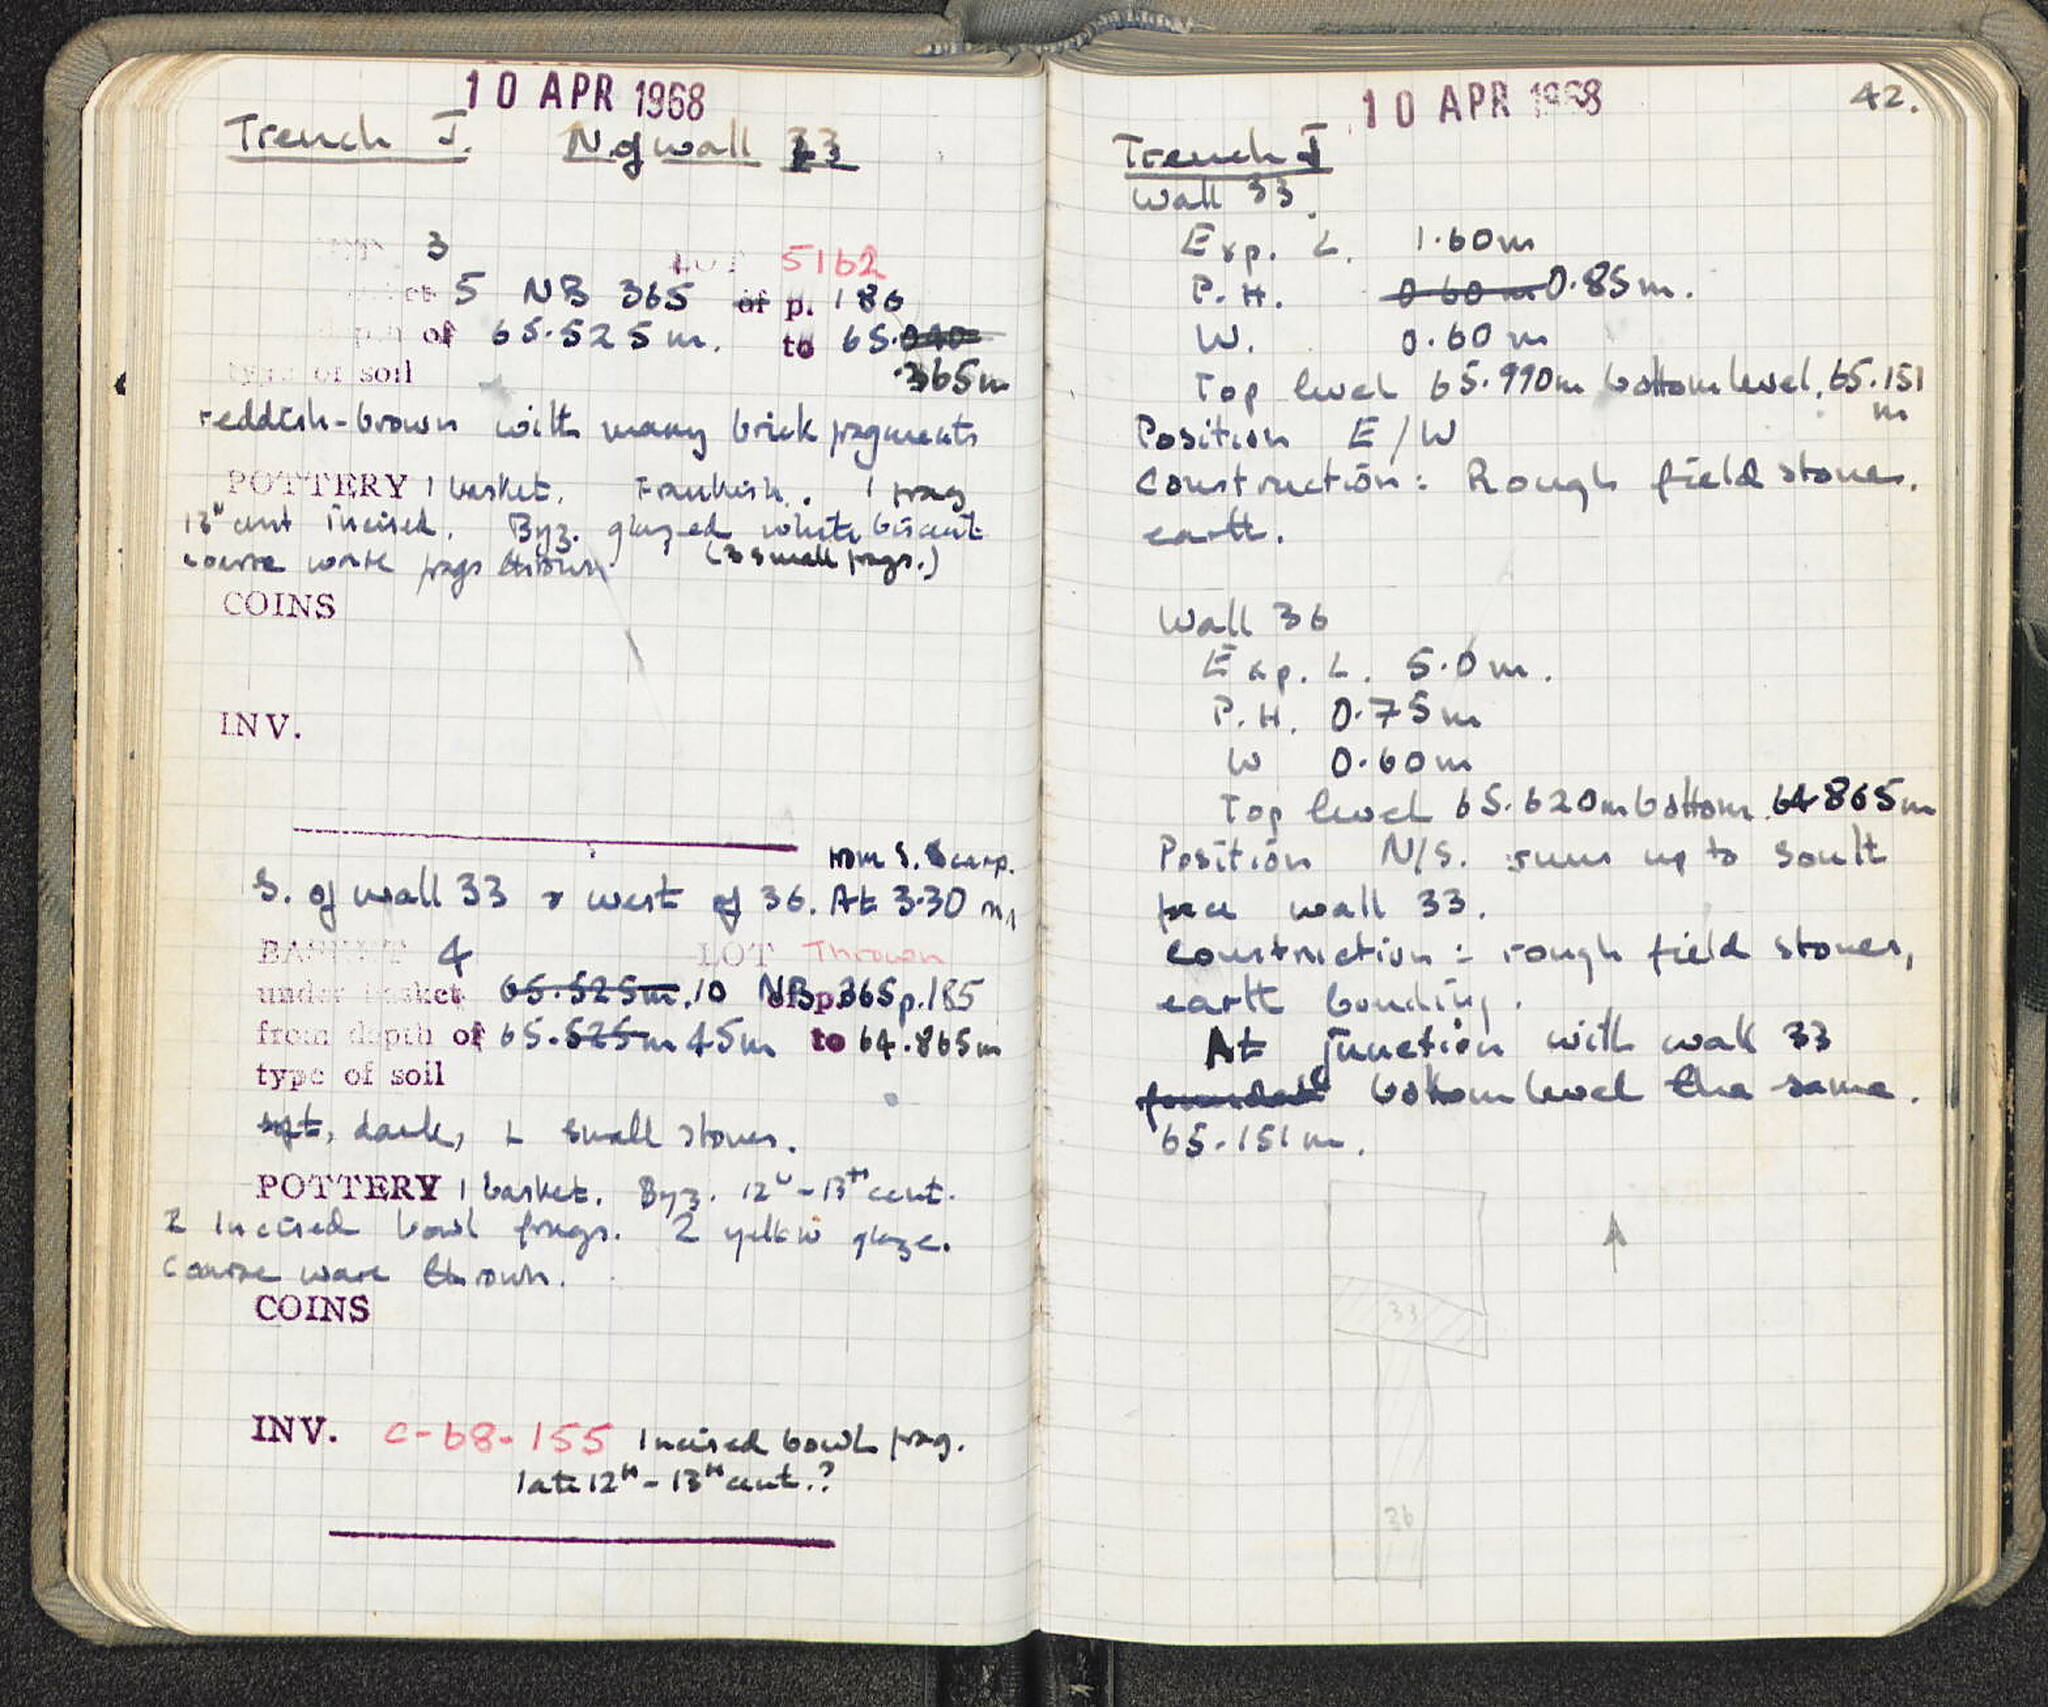 10 APR 1968
Trench J. N of wall 33
3 LOT 5162
5 NB 365 of p. 186
depth of 65.525m. to 65.040
.365m
type of soil
reddish-brown with many brick fragments
POTTERY 1 basket. Frankish. 1 frag
13th cent incised. Byz. glazed white biscuit
(3 small frags.)
coarse ware frags thrown
COINS
INV.
from S. Scarp.
S. of wall 33 & west of 36. At 3.30 m
BASKET 4 LOT Thrown
under basket 65.525m. 10 NB 365 p. 185
from depth of 65.525m 45m to 64.865m
type of soil
soft, dark, L small stones.
POTTERY 1 basket. Byz. 12th - 13th cent.
2 Incised bowl frags. 2 yellow glaze.
Coarse ware thrown.
COINS
INV. C-68-155 Incised bowl frag.
late 12th - 13th cent.?
10 APR 1968
42.
Trench J
Wall 33.
Exp. L. 1.60m
P.H. 0.60m 0.85m.
W. 0.60m
Top level 65.990m bottom level. 65.151
m
Position E/W
Construction: Rough field stones.
earth.
Wall 36
Exp. L. 5.0m.
P.H. 0.75m
W 0.60m
Top level 65.620m bottom. 64.865m
Position N/S. runs up to south
face wall 33.
Construction: rough field stones,
earth bonding.
At junction with wall 33
foundat bottom level the same.
65.151m.
33
36